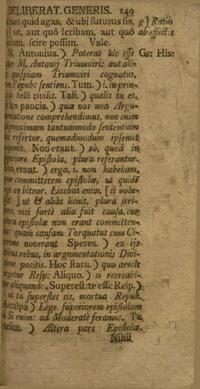 DELIBERAT. GENERIS. 149
quid agas, & ubi futurus sis,
ut, aut quò scribam, aut quò
scire possim. Vale.
M. Antonius.) Poterat hic esse
M. Antonij Triumviri: aut ali-
quispiam Triumviri cognatus,
Tum.) i. in prin-
belli civilis. Tali.) qualis tu es.
paucis.) quæ nos una Argu-
mentatione comprehendimus, non enim
proximam tantummodo sententiam
refertur, quemadmodum ipsemet
Non erant.) so, quod in
superiore Epistola, plura referantur.
erant.) ergo, i. non habebam,
committerem epistolæ, ut quidē
bitror. Licebat enim, [si volu-
] ut & aliàs licuit, plura scri-
nisi fortè alia fuit causa, cur
epistolæ non erant committen-
quam causam Torquatus cum Ci-
noverant Speres.) ex ijs
rebus, in argumentationis Divi-
positis. Hoc statu.) quo armis
Resp: Aliquo.) si recreabi-
aliquando. Superest: te esse Reip.)
ut tu superstes sis, mortua Repub.
culpa) Lege superiorem epistolam
Si enim: ad Moderatè feramus. Tu
Altera pars Epistolæ,
Nihil
g] Ratio
ab effectis
Gr: His: